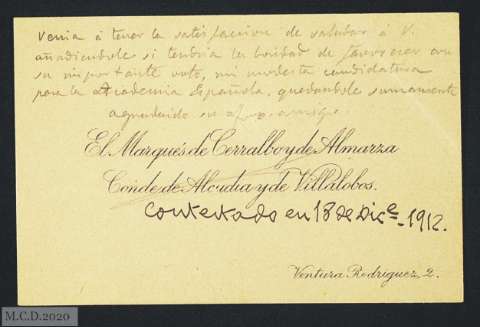 Venia á tener la satisfaccion de saludar á V.
añadiendole si tendria la bondad de favorecer con
su importante voto, mi modesta candidatura
para la Academia Española, quedandole sumamente
agradecido su af. amigo
El Marqués de Cerralbo y de Almarza
Conde de Alcudia y de Villalobos.
Contestado en 18 de Dice. 1912.
Ventura Rodriguez, 2.
M.C.D.2020